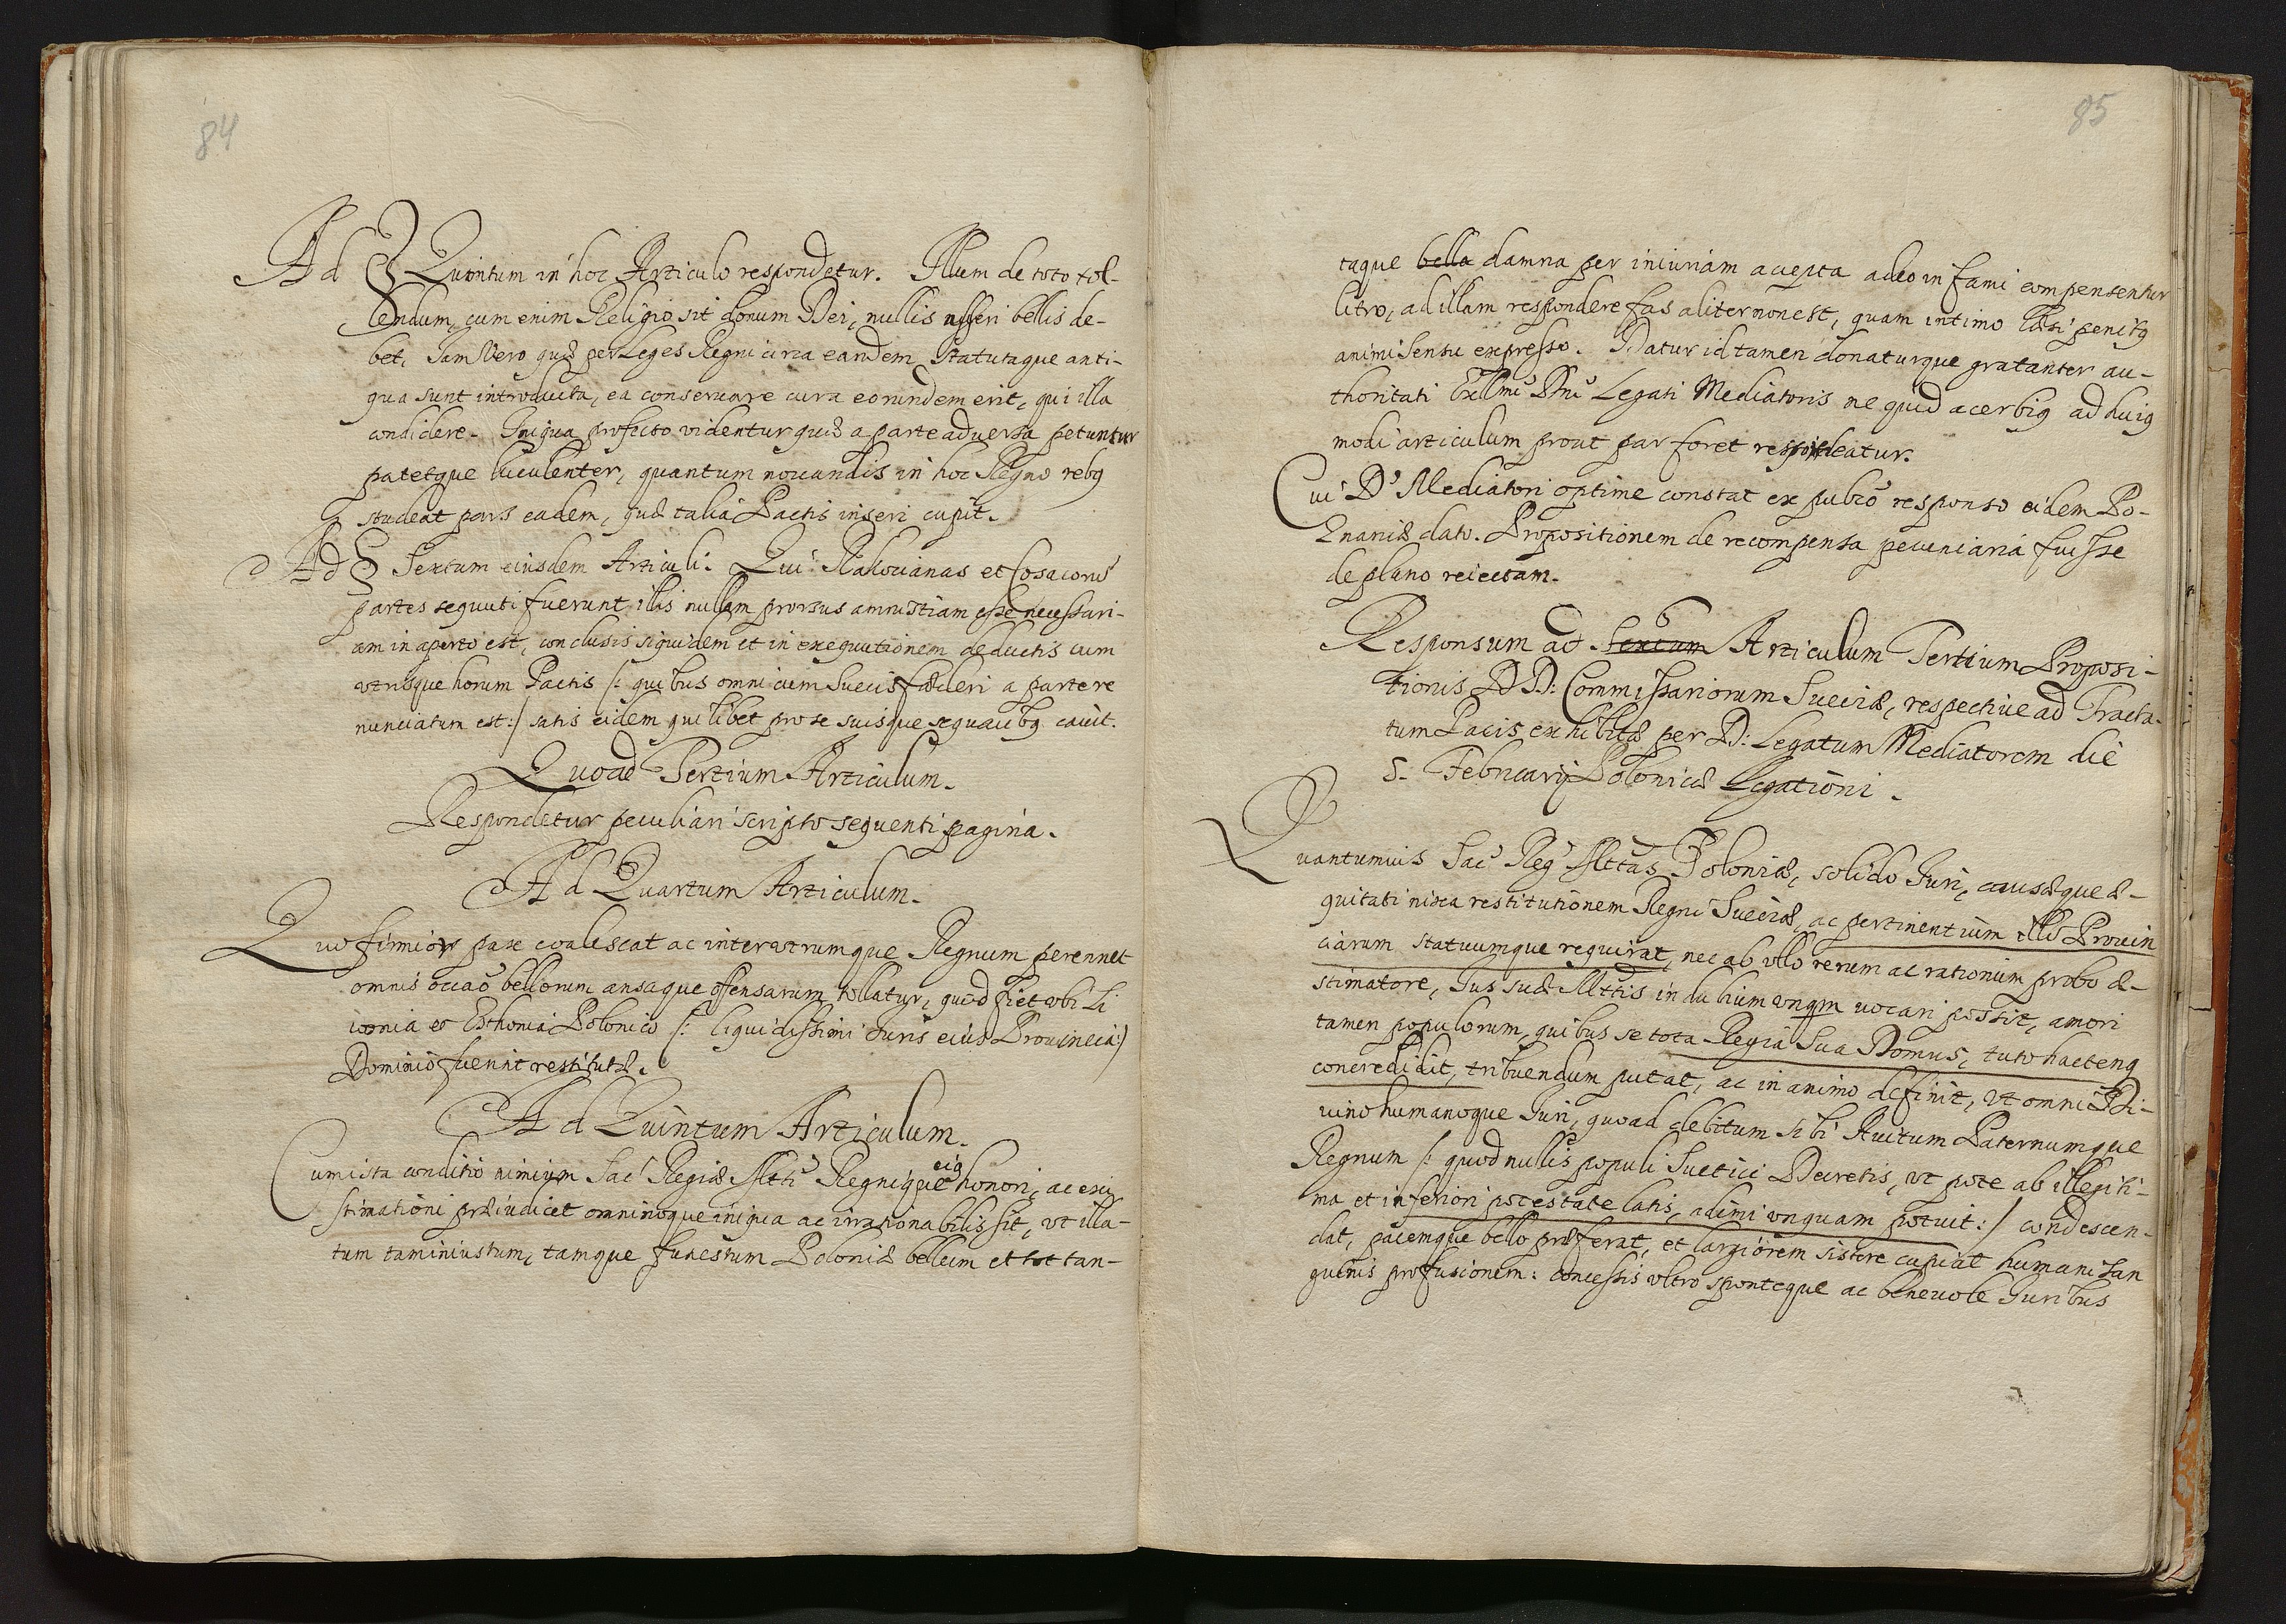 84
Ad § Quintum in hoc Articulo respondetur. Illum de toto tol-
lendum, cum enim Religio sit donum Dei, nullis asseri bellis de-
bet, Jam Vero quæ per Leges Regni circa eandem Statutaque anti-
qua sunt introducta, ea conseruare cura eorundem erit, qui illa
condidere. Iniqua profecto videntur quæ a parte aduersa petuntur
patetque luculenter, quantum nouandis in hoc Regno rebꝫ
studeat pars eadem, quæ talia Pactis inseri cupit.
Ad § Sextum eiusdem Articuli. Qui Rakocianas et Cosacorū
partes sequuti fuerunt illis nullam prorsus amnistiam esse necessari-
am in aperto est, conclusis siquidem et in exequutionem deductis cum
vtrisque horum Pactis /: quibus omni cum Suecis fœderi a parte re
nunciatum est :/ satis eidem quilibet pro se suisque sequacibꝫ cauit.
Quoad Tertium Articulum.
Respondetur peculiari scripto sequenti pagina.
Ad Quartum Articulum.
Quo firmior pax coalescat ac inter vtrumque Regnum perennet
omnis occaō bellorum ansaque offensarum tollatur, quod fiet vbi Li
uonia et Esthonia Polonico /: liquidissimi Juris eius Prouincia :/
Dominio fuerint restitutæ.
Ad Quintum Articulum.
Cum ista conditio nimium Sac Regiæ Mtti Regnique eiꝫ honori, ac exi
stimationi præiudicet omninoque iniqua ac irrationabilis sit, vt illa-
tum tam iniustum, tamque funestum Poloniæ bellum et tot tan-
85
taque bella damna per iniuriam accepta adeo infami compensentur
litro, ad illam respondere fas aliter non est, quam intimo læsi penitꝫ
animi sensu expresso. Datur id tamen donaturque gratanter au-
thoritati Exllmi Dni Legati Mediatoris ne quid acerbiꝫ ad huiꝫ
modi articulum prout par foret respondeatur.
Cui D' Mediatori optime constat ex publco responso eidem Po-
znaniæ dato. Propositionem de recompensa pecuniaria fuisse
de plano reiectam.
Responsum ad Sextum Articulum Tertium Proposi-
tionis DD: Commissariorum Sueciæ, respectiue ad Tracta-
tum Pacis exhibitæ per D: Legatum Mediatorem die
5. Februarij Polonicæ Legationi.
Quantumuis Sac Reg Mttas Poloniæ, solido Juri, causæque æ-
quitati nixa restitutionem Regni Sueciæ, ac pertinentium illis Prouin
ciarum statuumque requirat, nec ab vllo rerum ac rationum probo æ-
stimatore, Jus suæ Mttis in dubium vnqm uocari possit, amori
tamen populorum, quibus se tota Regia Sua Domus, tuto hactenꝫ
concredidit, tribuendum putat, ac in animo definit, vt omni Di-
uino humanoque Juri, quoad debitum sibi Auitum Paternumque
Regnum /: quod nullis populi Suetici Decretis, vt pote ab illegiti-
ma et inferiori potestate latis, adimi vnquam potuit :/ condescen-
dat, pacemque bello præferat, et largiorem sistere cupiat humani San
guinis profusionem: concessis vltro sponteque ac beneuole Juribus